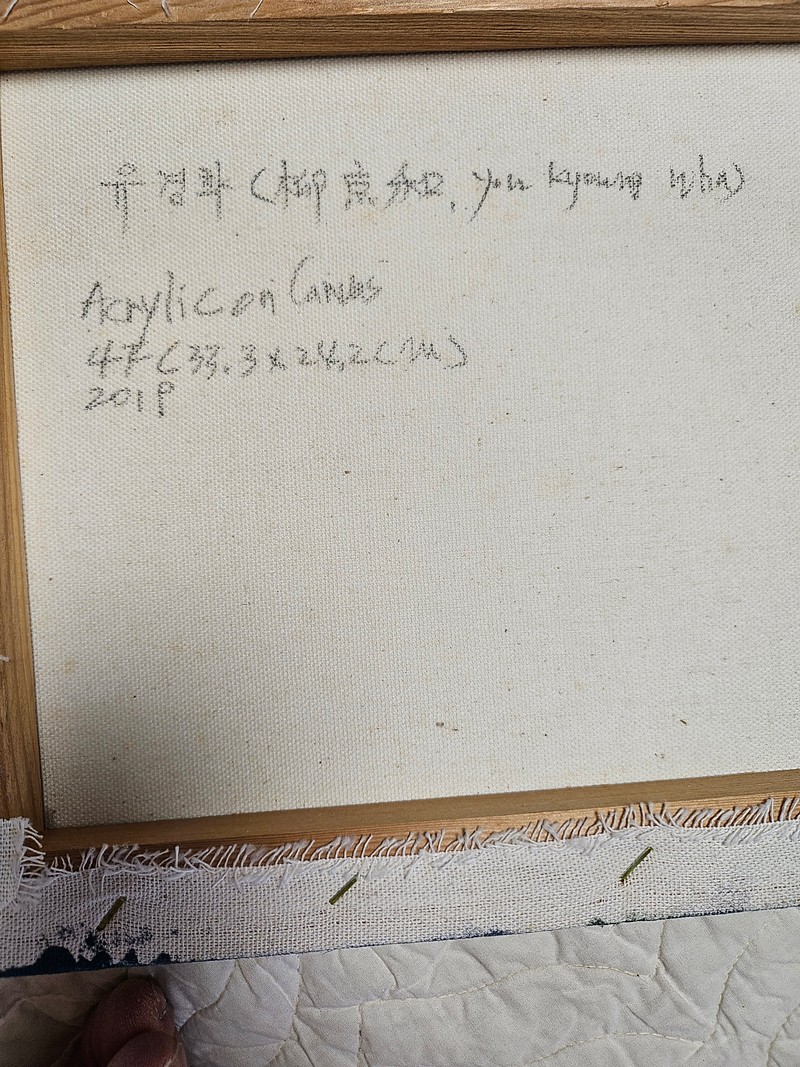 유경화 (柳京和, you kyoung wha)
Acrylic on Canvas
4F (33.3 x 24.2cm)
2019